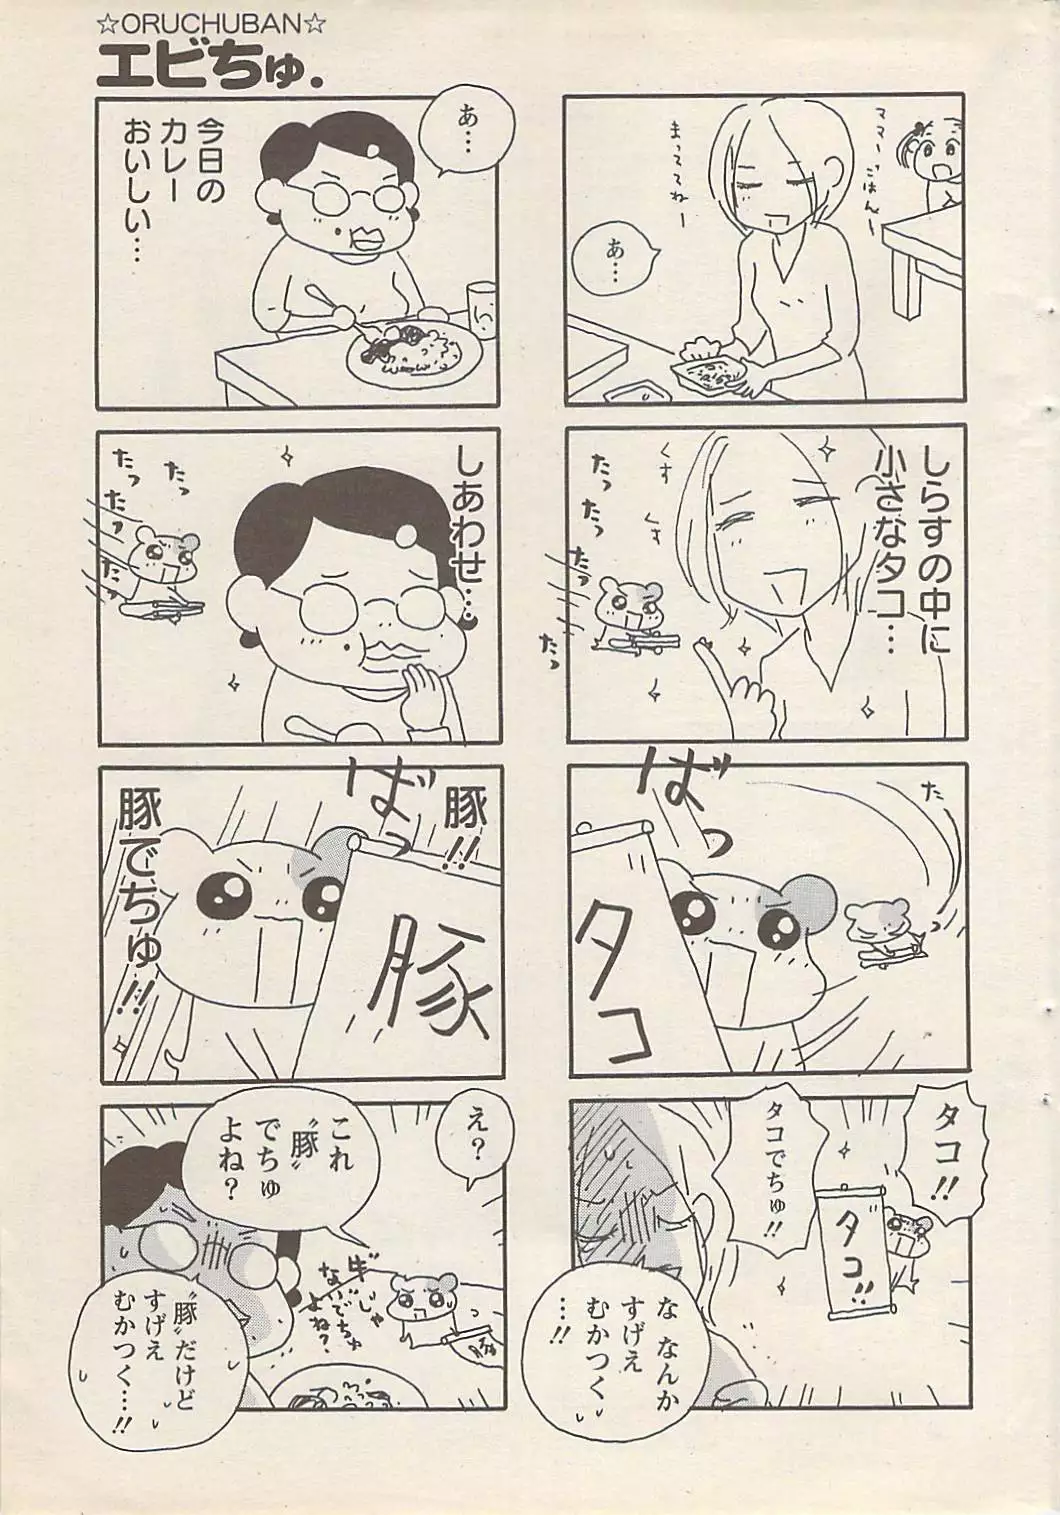 ☆ORUCHUBAN☆
エビちゅ.
ママーごはんー
まっててねー
あ…
しらすの中に
小さなタコ…
くす
くす
たっ
たっ
たっ
たっ
たっ
ばっ
タコ
タコ!!
タコでちゅ!!
タコ!!
な なんか
すげえ
むかつく
…!!
あ…
今日の
カレー
おいしい…
しあわせ…
たっ
たっ
たっ
たっ
ばっ
豚!!
豚
豚でちゅ!!
え?
これ
〝豚〟
でちゅ
よね?
牛じゃ
ないでちゅ
よね?
豚
〝豚〟だけど
すげえ
むかつく…!!